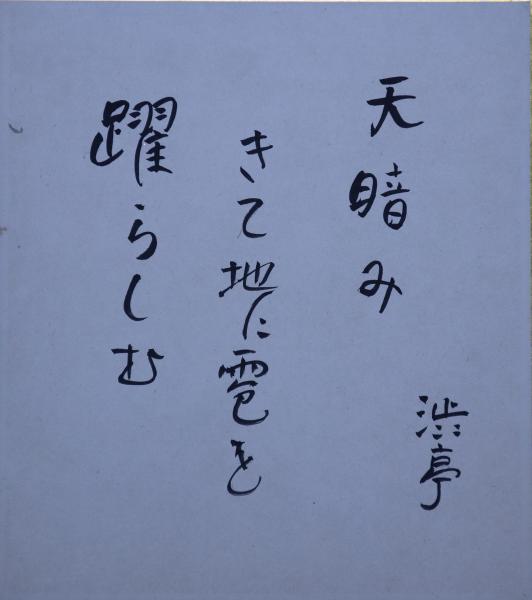 天暗み
きて地に雹を
躍らしむ
渋亭